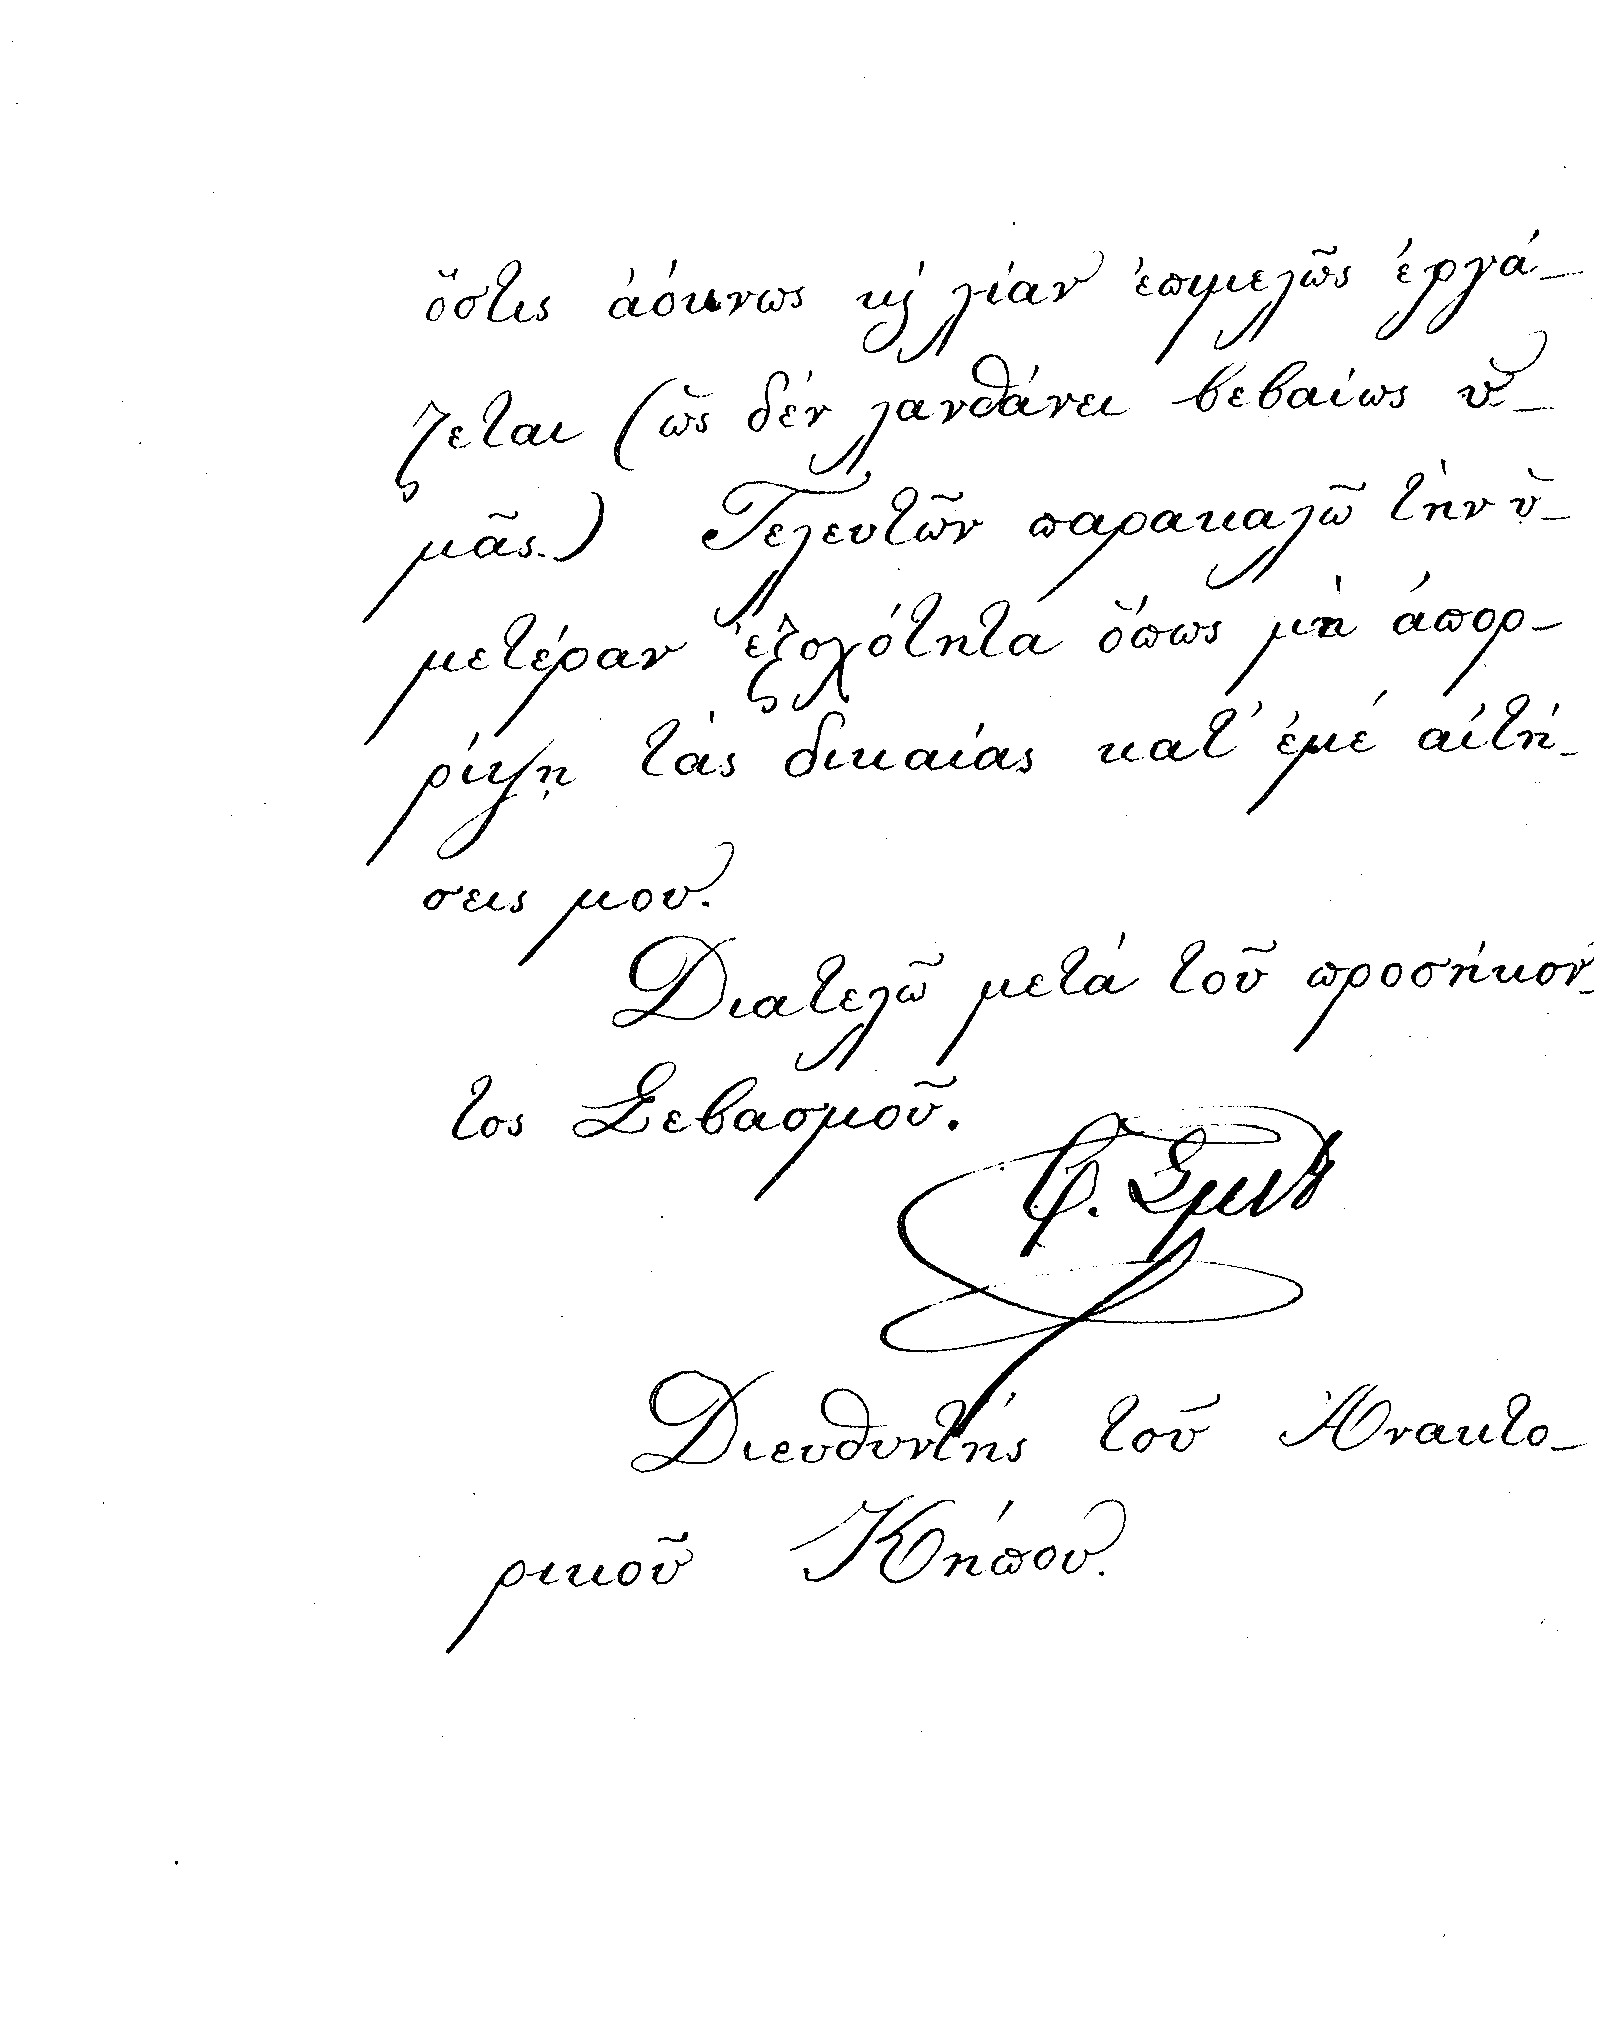 ὅστις ἀόκνως κ̀ λίαν ἐπιμελῶς ἐργά-
ζεται (ὡς δὲν λανθάνει βεβαίως ὑ-
μᾶς.) Τελευτῶν παρακαλῶ τὴν ὑ-
μετέραν ἐξοχότητα ὅπως μὴ ἀπορ-
ρίψῃ τὰς δικαίας κατ' ἐμέ αἰτή-
σεις μου.
Διατελῶ μετὰ τοῦ προσήκον-
τος Σεβασμοῦ.
Φ. Σμιθ
Διευθυντὴς τοῦ Ἀνακτο-
ρικοῦ Κήπου.